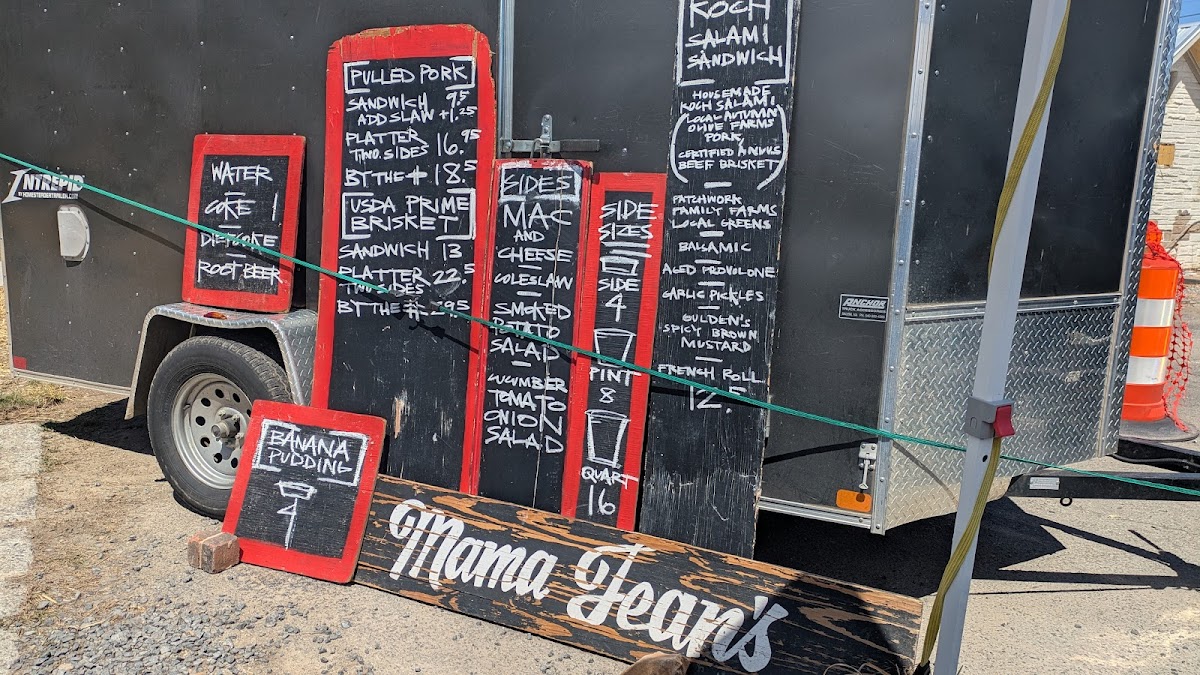 INTREPID
WATER
COKE 1
DIET COKE
ROOT BEER
PULLED PORK
SANDWICH 9.5
ADD SLAW +1.25
PLATTER 16.95
TWO SIDES
BY THE # 18.5
USDA PRIME
BRISKET
SANDWICH 13
PLATTER 22.5
TWO SIDES
BY THE #
SIDES
MAC
AND
CHEESE
COLESLAW
SMOKED
POTATO
SALAD
CUCUMBER
TOMATO
ONION
SALAD
SIDE
SIZES
SIDE
4
PINT
8
QUART
16
KOCH
SALAMI
SANDWICH
HOUSEMADE
KOCH SALAMI
(LOCAL AUTUMN
OLIVE FARMS
PORK,
CERTIFIED ANGUS
BEEF BRISKET)
PATCHWORK
FAMILY FARMS
LOCAL GREENS
BALSAMIC
AGED PROVOLONE
GARLIC PICKLES
GULDEN'S
SPICY BROWN
MUSTARD
FRENCH ROLL
12.5
ANCHOR
BANANA
PUDDING
4
Mama Jean's